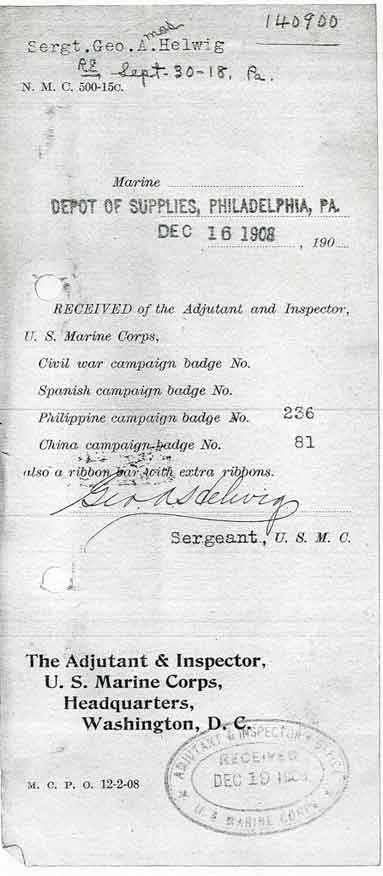 140900
Sergt. Geo. A. Helwig
Sept-30-18. Pa.
N. M. C. 500-15c.
Marine
DEPOT OF SUPPLIES, PHILADELPHIA, PA.
DEC 16 1908, 190
RECEIVED of the Adjutant and Inspector,
U. S. Marine Corps,
Civil war campaign badge No.
Spanish campaign badge No.
Philippine campaign badge No. 236
China campaign badge No. 81
also a ribbon bar with extra ribbons.
Geo. A. Helwig
Sergeant, U. S. M. C.
The Adjutant & Inspector,
U. S. Marine Corps,
Headquarters,
Washington, D. C.
ADJUTANT & INSPECTOR'S OFFICE
RECEIVED
DEC 19
U. S. MARINE CORPS
M. C. P. O. 12-2-08